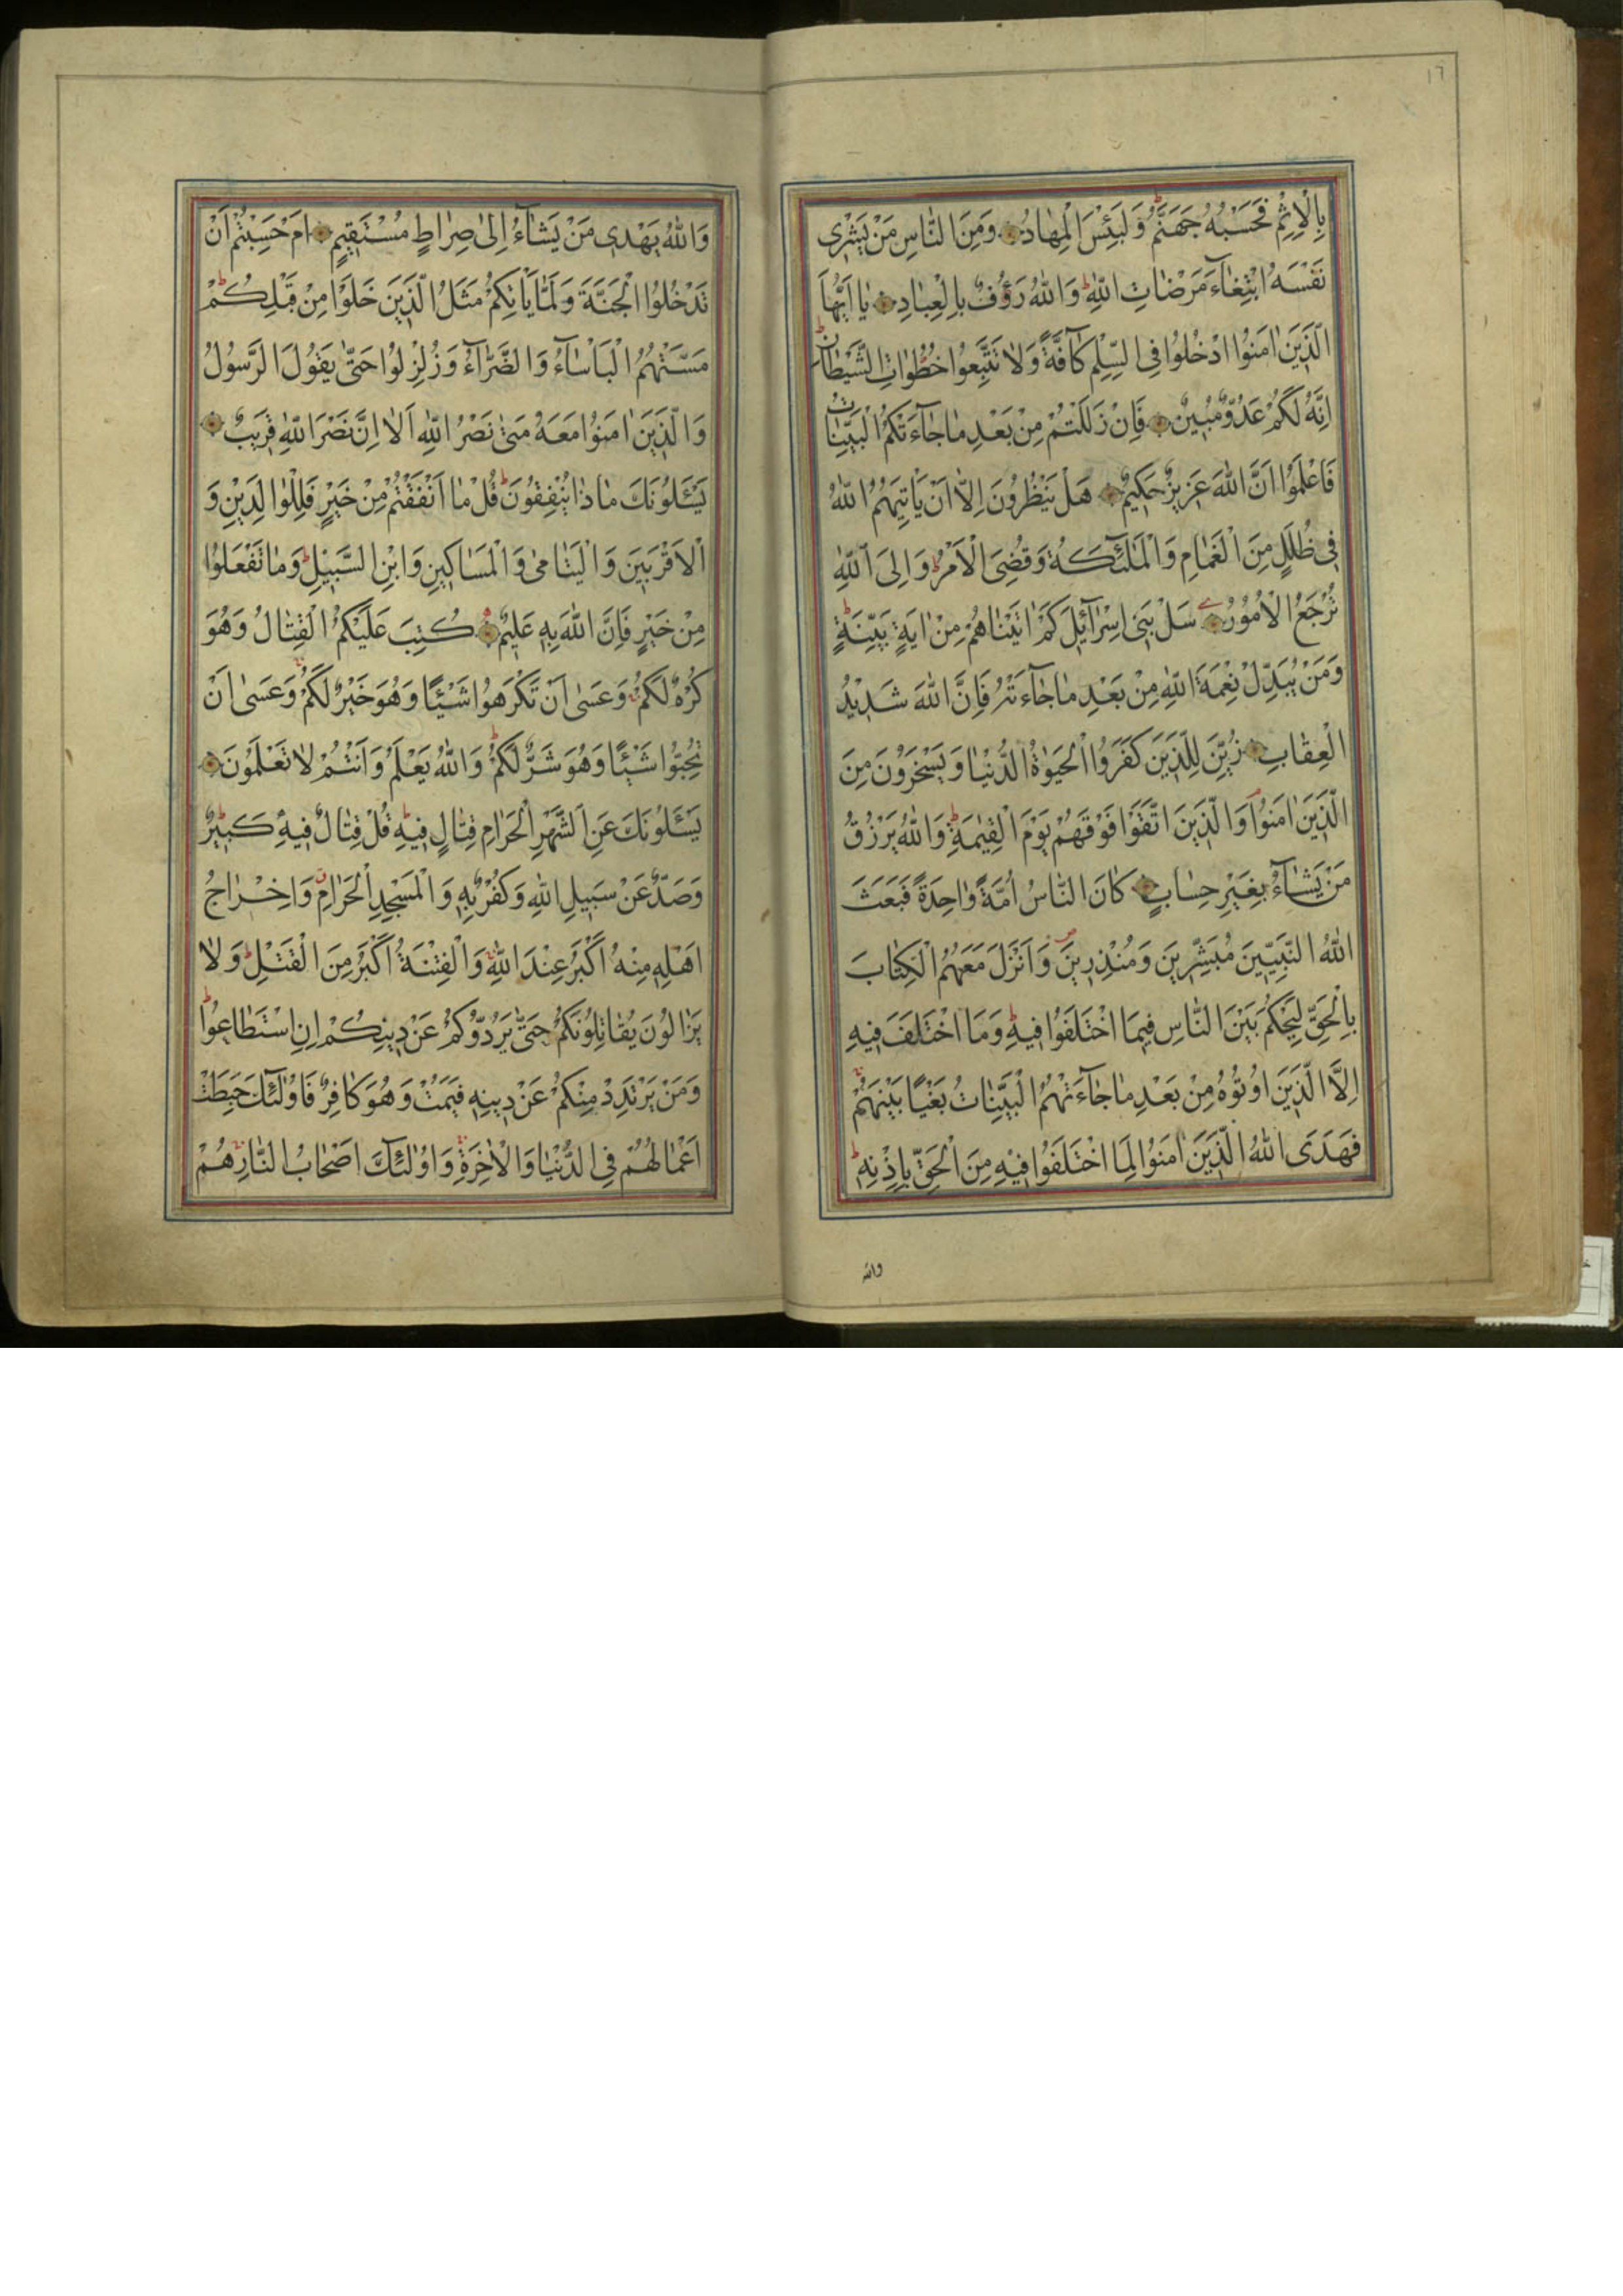 ١٦
بِالْاِثْمِ فَحَسْبُهُ جَهَنَّمُ وَلَبِئْسَ الْمِهَادُ وَمِنَ النَّاسِ مَنْ يَشْرِى
نَفْسَهُ ابْتِغَآءَ مَرْضَاتِ اللّٰهِ وَاللّٰهُ رَؤُفٌ بِالْعِبَادِ يَا اَيُّهَا
الَّذِينَ اٰمَنُوا ادْخُلُوا فِى السِّلْمِ كَآفَّةً وَلَا تَتَّبِعُوا خُطُوَاتِ الشَّيْطَانِ
اِنَّهُ لَكُمْ عَدُوٌّ مُبِينٌ فَاِنْ زَلَلْتُمْ مِنْ بَعْدِ مَا جَآءَتْكُمُ الْبَيِّنَاتُ
فَاعْلَمُوا اَنَّ اللّٰهَ عَزِيزٌ حَكِيمٌ هَلْ يَنْظُرُونَ اِلَّا اَنْ يَاْتِيَهُمُ اللّٰهُ
فِى ظُلَلٍ مِنَ الْغَمَامِ وَالْمَلٰئِكَةُ وَقُضِىَ الْاَمْرُ وَاِلَى اللّٰهِ
تُرْجَعُ الْاُمُوْرُ سَلْ بَنِى اِسْرَآئِلَ كَمْ اٰتَيْنَاهُمْ مِنْ اٰيَةٍ بَيِّنَةٍ
وَمَنْ يُبَدِّلْ نِعْمَةَ اللّٰهِ مِنْ بَعْدِ مَا جَآءَتْهُ فَاِنَّ اللّٰهَ شَدِيْدُ
الْعِقَابِ زُيِّنَ لِلَّذِينَ كَفَرُوا الْحَيٰوةُ الدُّنْيَا وَيَسْخَرُوْنَ مِنَ
الَّذِينَ اٰمَنُوْا وَالَّذِينَ اتَّقَوْا فَوْقَهُمْ يَوْمَ الْقِيٰمَةِ وَاللّٰهُ يَرْزُقُ
مَنْ يَشَآءُ بِغَيْرِ حِسَابٍ كَانَ النَّاسُ اُمَّةً وَاحِدَةً فَبَعَثَ
اللّٰهُ النَّبِيِّينَ مُبَشِّرِينَ وَمُنْذِرِينَ وَاَنْزَلَ مَعَهُمُ الْكِتَابَ
بِالْحَقِّ لِيَحْكُمَ بَيْنَ النَّاسِ فِيمَا اخْتَلَفُوا فِيهِ وَمَا اخْتَلَفَ فِيهِ
اِلَّا الَّذِينَ اُوتُوْهُ مِنْ بَعْدِ مَا جَآءَتْهُمُ الْبَيِّنَاتُ بَغْيًا بَيْنَهُمْ
فَهَدَى اللّٰهُ الَّذِينَ اٰمَنُوا لِمَا اخْتَلَفُوا فِيْهِ مِنَ الْحَقِّ بِاِذْنِهِ
والله
وَاللّٰهُ يَهْدِى مَنْ يَشَآءُ اِلٰى صِرَاطٍ مُسْتَقِيمٍ اَمْ حَسِبْتُمْ اَنْ
تَدْخُلُوا الْجَنَّةَ وَلَمَّا يَاْتِكُمْ مَثَلُ الَّذِينَ خَلَوْا مِنْ قَبْلِكُمْ
مَسَّتْهُمُ الْبَاْسَآءُ وَالضَّرَّآءُ وَزُلْزِلُوا حَتّٰى يَقُولَ الرَّسُولُ
وَالَّذِينَ اٰمَنُوا مَعَهُ مَتٰى نَصْرُ اللّٰهِ اَلَا اِنَّ نَصْرَ اللّٰهِ قَرِيبٌ
يَسْئَلُونَكَ مَاذَا يُنْفِقُونَ قُلْ مَا اَنْفَقْتُمْ مِنْ خَيْرٍ فَلِلْوَالِدَيْنِ وَ
الْاَقْرَبِينَ وَالْيَتَامٰى وَالْمَسَاكِينِ وَابْنِ السَّبِيْلِ وَمَا تَفْعَلُوْا
مِنْ خَيْرٍ فَاِنَّ اللّٰهَ بِهِ عَلِيمٌ كُتِبَ عَلَيْكُمُ الْقِتَالُ وَهُوَ
كُرْهٌ لَكُمْ وَعَسٰى اَنْ تَكْرَهُوا شَيْئًا وَهُوَ خَيْرٌ لَكُمْ وَعَسٰى اَنْ
تُحِبُّوا شَيْئًا وَهُوَ شَرٌّ لَكُمْ وَاللّٰهُ يَعْلَمُ وَاَنْتُمْ لَا تَعْلَمُوْنَ
يَسْئَلُونَكَ عَنِ الشَّهْرِ الْحَرَامِ قِتَالٍ فِيهِ قُلْ قِتَالٌ فِيهِ كَبِيْرٌ
وَصَدٌّ عَنْ سَبِيلِ اللّٰهِ وَكُفْرٌ بِهِ وَالْمَسْجِدِ الْحَرَامِ وَاِخْرَاجُ
اَهْلِهِ مِنْهُ اَكْبَرُ عِنْدَ اللّٰهِ وَالْفِتْنَةُ اَكْبَرُ مِنَ الْقَتْلِ وَلَا
يَزَالُونَ يُقَاتِلُوْنَكُمْ حَتّٰى يَرُدُّوكُمْ عَنْ دِينِكُمْ اِنِ اسْتَطَاعُوْا
وَمَنْ يَرْتَدِدْ مِنْكُمْ عَنْ دِينِهِ فَيَمُتْ وَهُوَ كَافِرٌ فَاُولٰئِكَ حَبِطَتْ
اَعْمَالُهُمْ فِى الدُّنْيَا وَالْاٰخِرَةِ وَاُولٰئِكَ اَصْحَابُ النَّارِ هُمْ